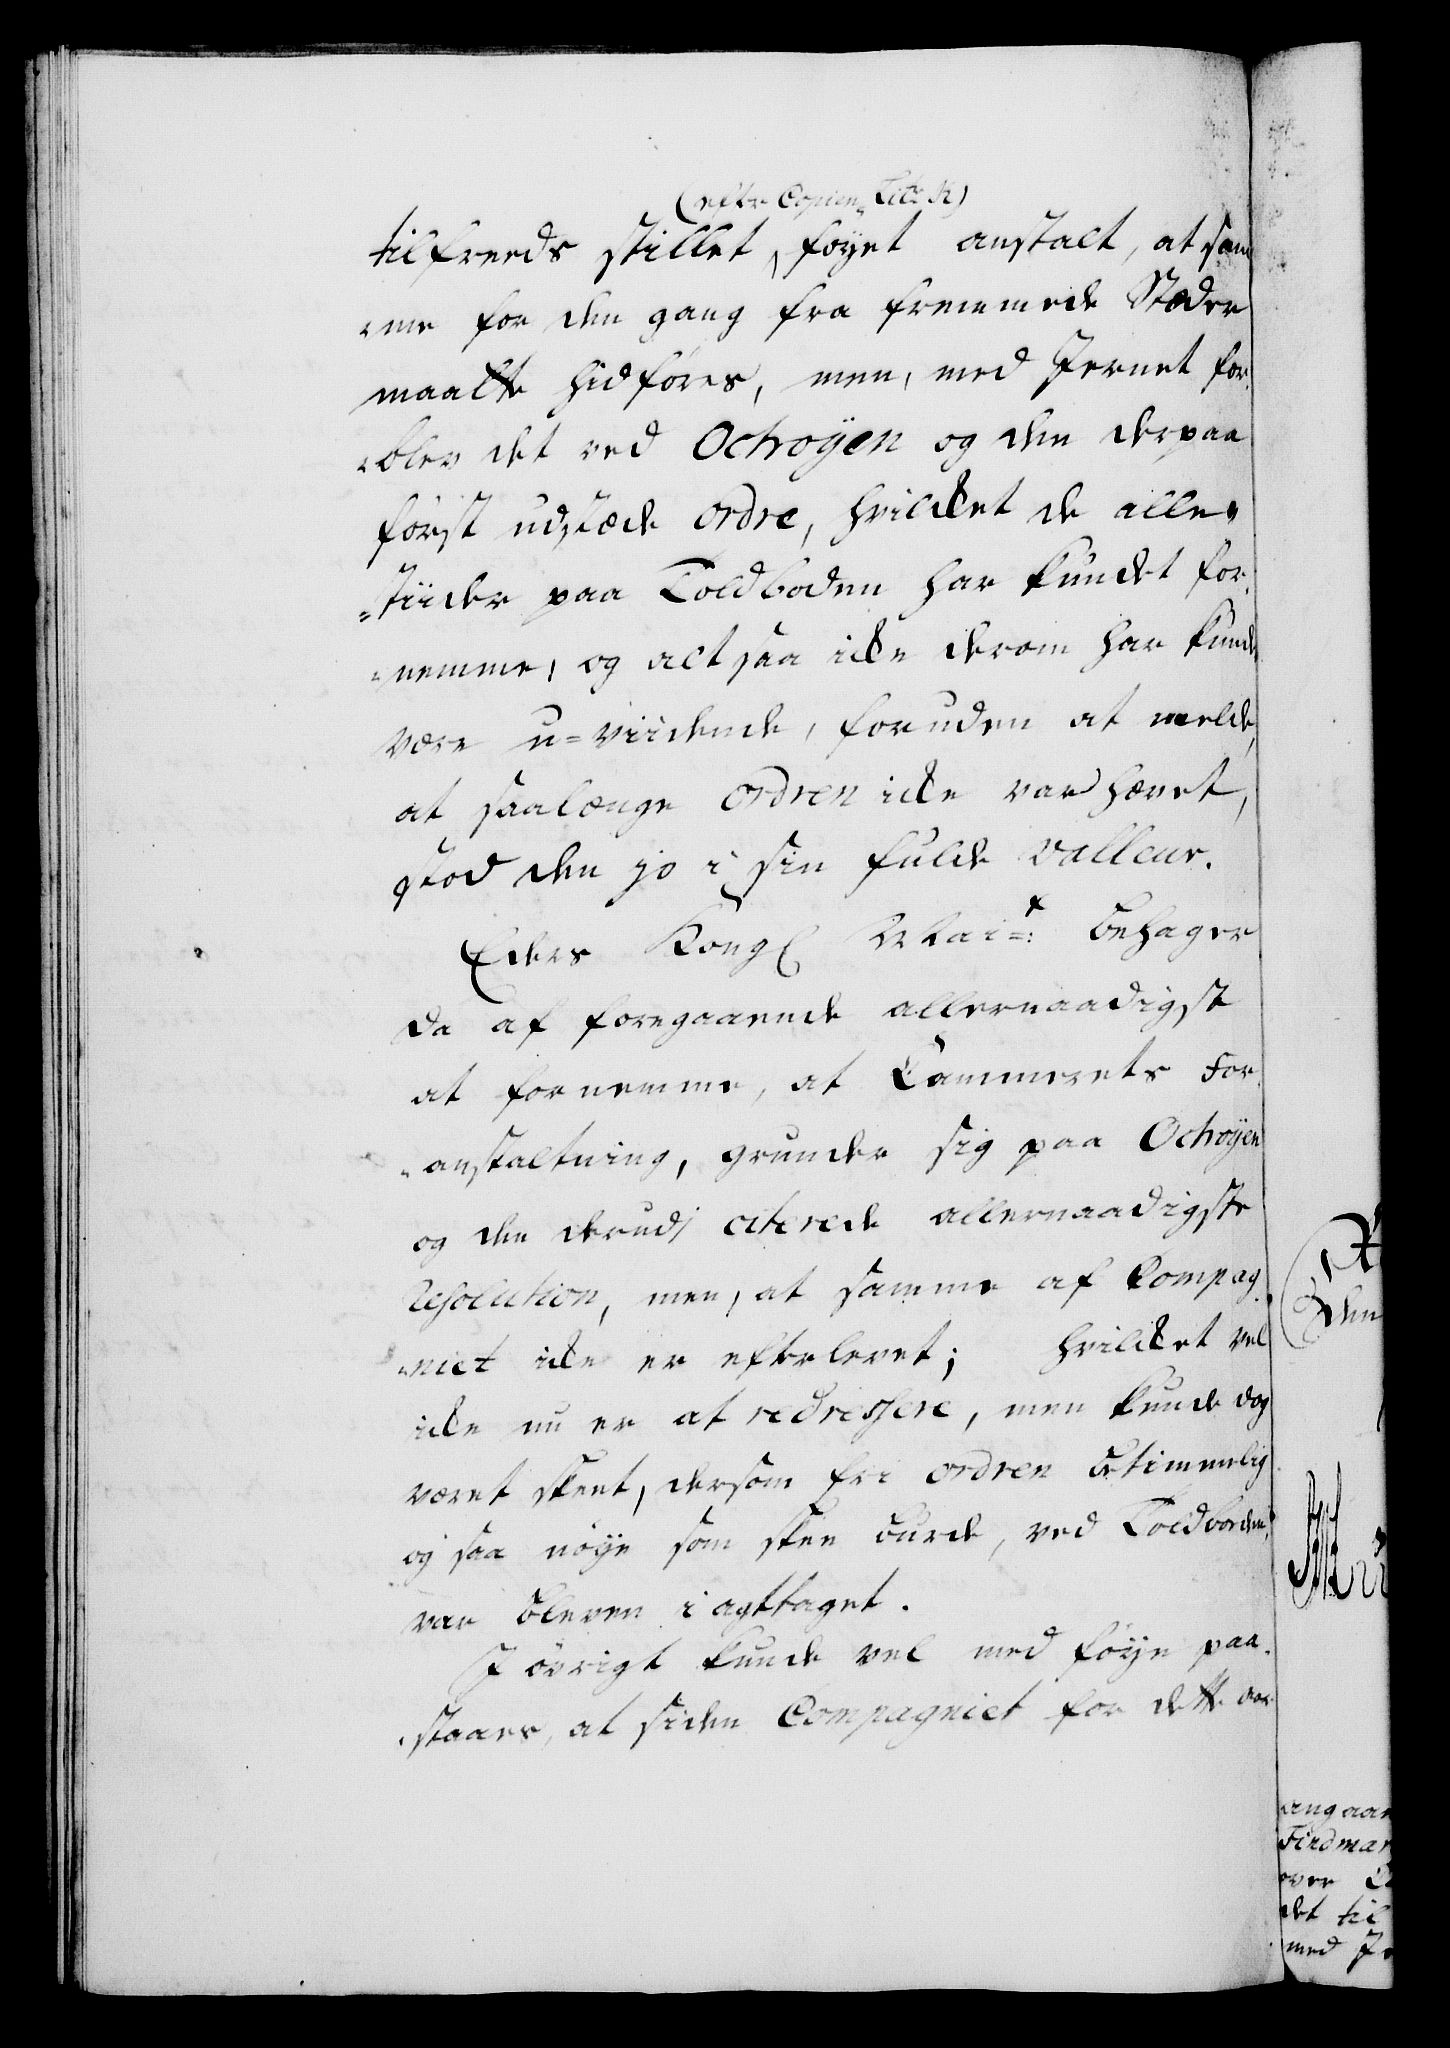 (efter Copien Litr K)
tilfreeds stillet, føyet anstalt, at sam
-me for den gang fra fremmede Stæder
maatte hidføres, men, med Jernet for-
-blev det ved Octroyen og den derpaa
først udstæde Ordre, hvilcket de alle-
-tiider paa Toldboden har kundet for-
-nemme, og altsaa icke derom har kunde
være u-viidende, foruden at melde,
at saalænge Ordren icke var hævet,
stod den jo i sin fulde valleur.
Eders Kongl Mai=t: behager
da af foregaaende allernaadigst
at fornemme, at Cammerets For-
-anstaltning, grunder sig paa Octroyen
og den derudj citerede allernaadigste
Resolution, men, at samme af Compag-
-niet icke er efterlevet; hvilcket vel
icke nu er at redressere, men kunde dog
været skeet, dersom fri ordren betimmelig
og saa nøye som skee burde, ved Toldboden,
var bleven i agttaget.
I øvrigt kunde vel med føye paa-
-staaes, at siden Compagniet for dette aar
angaae
Findmar
over
det til
med Je